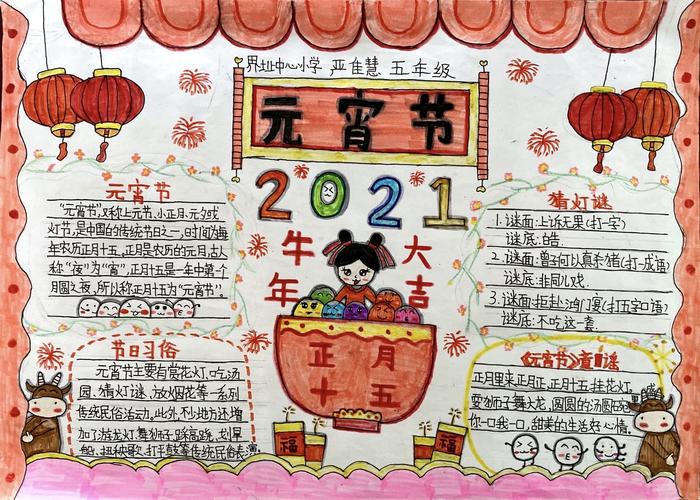 界址中心小学 严佳慧 五年级
元宵节
2021
牛年
大吉
正月
十五
福
福
元宵节
"元宵节",又称上元节、小正月、元夕或
灯节,是中国的传统节日之一,时间为每
年农历正月十五,正月是农历的元月,古人
称"夜"为"宵",正月十五是一年中第一个
月圆之夜,所以称正月十五为"元宵节"。
猜灯谜
1.谜面:上诉无果(打一字)
谜底:皓.
2.谜面:曾子何以真杀猪(打一成语)
谜底:非同儿戏.
3.谜面:拒赴鸿门宴(打五字口语)
谜底:不吃这一套.
节日习俗
元宵节主要有赏花灯、吃汤
圆、猜灯谜、放烟花等一系列
传统民俗活动。此外,不少地方还增
加了游龙灯、舞狮子、踩高跷、划旱
船、扭秧歌、打太平鼓等传统民俗表演。
《元宵节》童谣
正月里来正月正,正月十五挂花灯,
耍狮子舞大龙,圆圆的汤圆碗里盛,
你一口我一口,甜美的生活好心情。